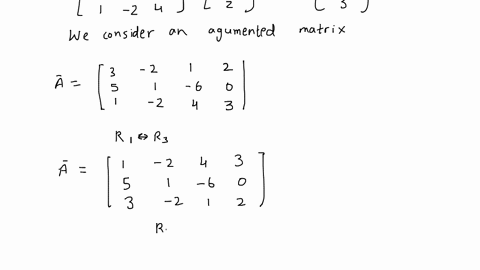 1 -2 4 2 3
We consider an agumented matrix
Ā = [ 3 -2 1 2
5 1 -6 0
1 -2 4 3 ]
R1 ↔ R3
Ā = [ 1 -2 4 3
5 1 -6 0
3 -2 1 2 ]
R.